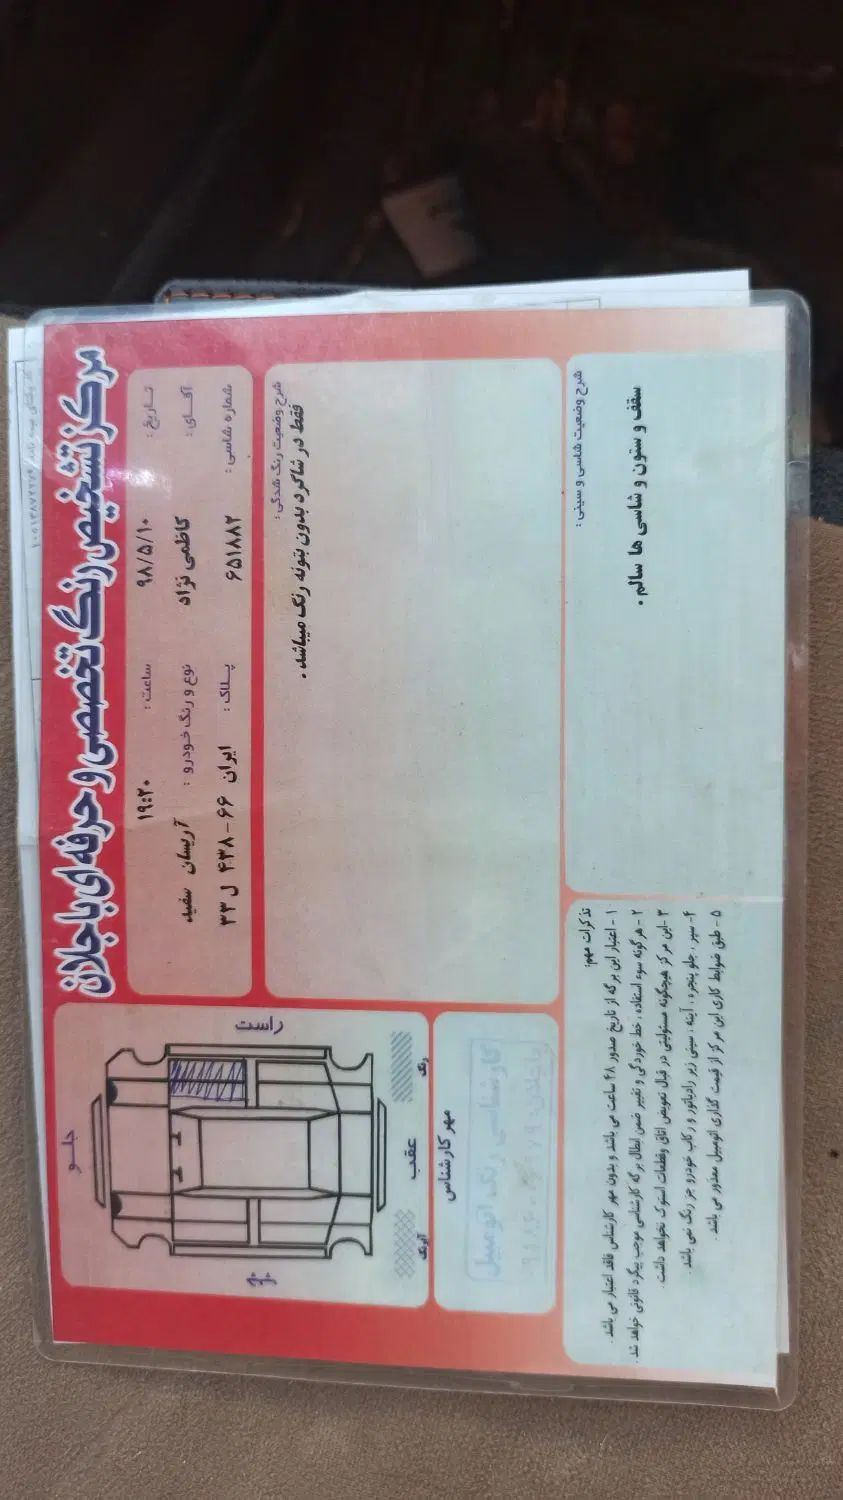 مرکز تشخیص رنگ تخصصی و حرفه ای باجلان
تاریخ : ۹۸/۵/۱۰ ساعت : ۱۹:۲۰
آقای : کاظمی نژاد نوع و رنگ خودرو : آریسان سفید
شماره شاسی : ۶۵۱۸۸۲ پلاک : ایران ۶۶ - ۴۳۸ ل ۳۳
شرح وضعیت رنگ شدگی :
فقط در شاگرد بدون بتونه رنگ میباشد .
شرح وضعیت شاسی و سینی :
سقف و ستون و شاسی ها سالم .
راست
جلو
عقب
چپ
رنگ
آبرنگ
مهر کارشناس
کارشناسی رنگ اتومبیل
تذکرات مهم:
۱ - اعتبار این برگه از تاریخ صدور ۴۸ ساعت می باشد و بدون مهر کارشناس فاقد اعتبار می باشد .
۲ - هرگونه سوء استفاده ، خط خوردگی و تغییر ضمن ابطال برگه کارشناسی موجب پیگرد قانونی خواهد شد .
۳ - این مرکز هیچگونه مسئولیتی در قبال تعویض اتاق وقطعات استوک نخواهد داشت .
۴ - سپر ، جلو پنجره ، آینه ، سینی زیر رادیاتور و رکاب خودرو جز رنگ نمی باشد .
۵ - طبق ضوابط کاری این مرکز از قیمت گذاری اتومبیل معذور می باشد .